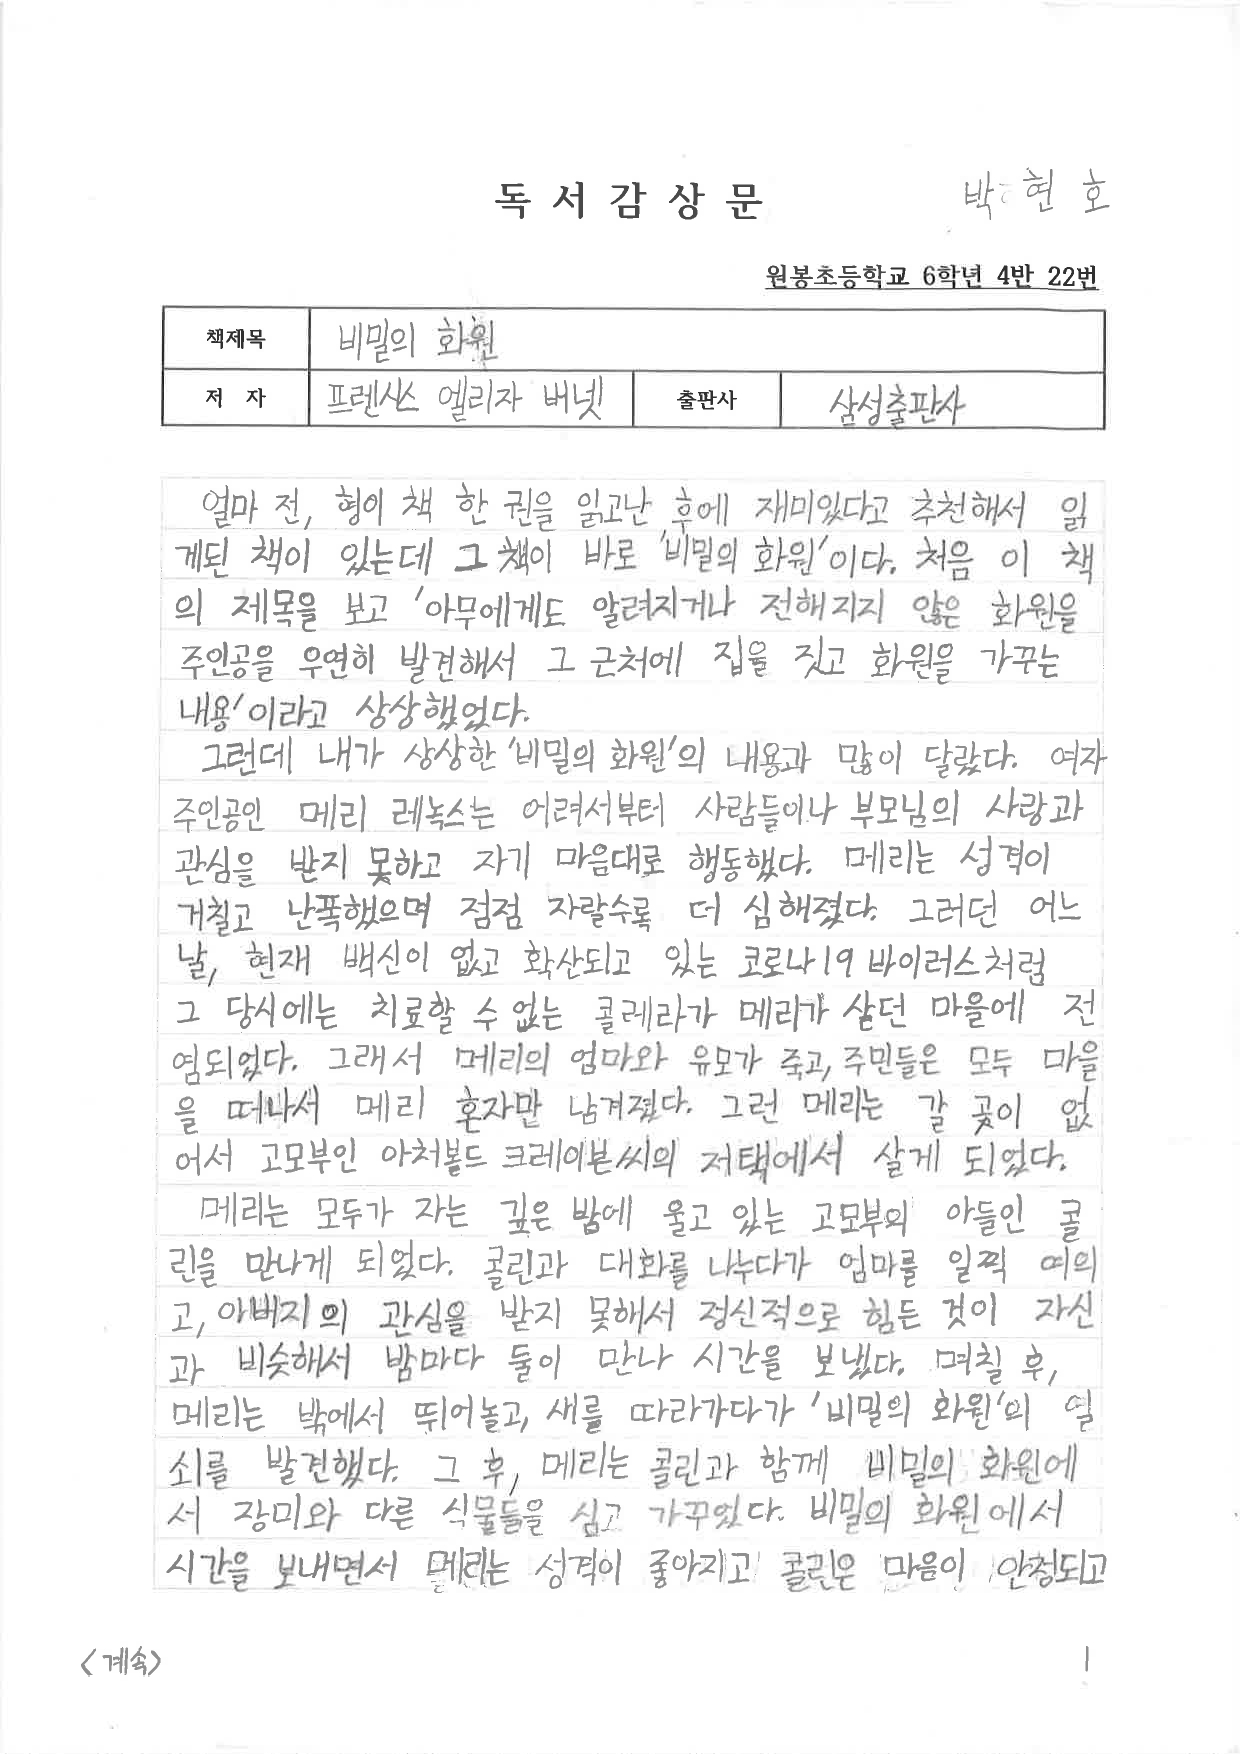 독 서 감 상 문
박현호
원봉초등학교 6학년 4반 22번
책제목 비밀의 화원
저 자 프렌시스 엘리자 버넷 출판사 삼성출판사
얼마 전, 형이 책 한 권을 읽고난 후에 재미있다고 추천해서 읽
게된 책이 있는데 그 책이 바로 '비밀의 화원'이다. 처음 이 책
의 제목을 보고 '아무에게도 알려지거나 전해지지 않은 화원을
주인공을 우연히 발견해서 그 근처에 집을 짓고 화원을 가꾸는
내용'이라고 상상했었다.
그런데 내가 상상한 '비밀의 화원'의 내용과 많이 달랐다. 여자
주인공인 메리 레녹스는 어려서부터 사람들이나 부모님의 사랑과
관심을 받지 못하고 자기 마음대로 행동했다. 메리는 성격이
거칠고 난폭했으며 점점 자랄수록 더 심해졌다. 그러던 어느
날, 현재 백신이 없고 확산되고 있는 코로나19 바이러스처럼
그 당시에는 치료할 수 없는 콜레라가 메리가 살던 마을에 전
염되었다. 그래서 메리의 엄마와 유모가 죽고, 주민들은 모두 마을
을 떠나서 메리 혼자만 남겨졌다. 그런 메리는 갈 곳이 없
어서 고모부인 아처볼드 크레이븐씨의 저택에서 살게 되었다.
메리는 모두가 자는 깊은 밤에 울고 있는 고모부의 아들인 콜
린을 만나게 되었다. 콜린과 대화를 나누다가 엄마를 일찍 여의
고, 아버지의 관심을 받지 못해서 정신적으로 힘든 것이 자신
과 비슷해서 밤마다 둘이 만나 시간을 보냈다. 며칠 후,
메리는 밖에서 뛰어놀고, 새를 따라가다가 '비밀의 화원'의 열
쇠를 발견했다. 그 후, 메리는 콜린과 함께 비밀의 화원에
서 장미와 다른 식물들을 심고 가꾸었다. 비밀의 화원에서
시간을 보내면서 메리는 성격이 좋아지고 콜린은 마음이 안정되고
<계속>
1